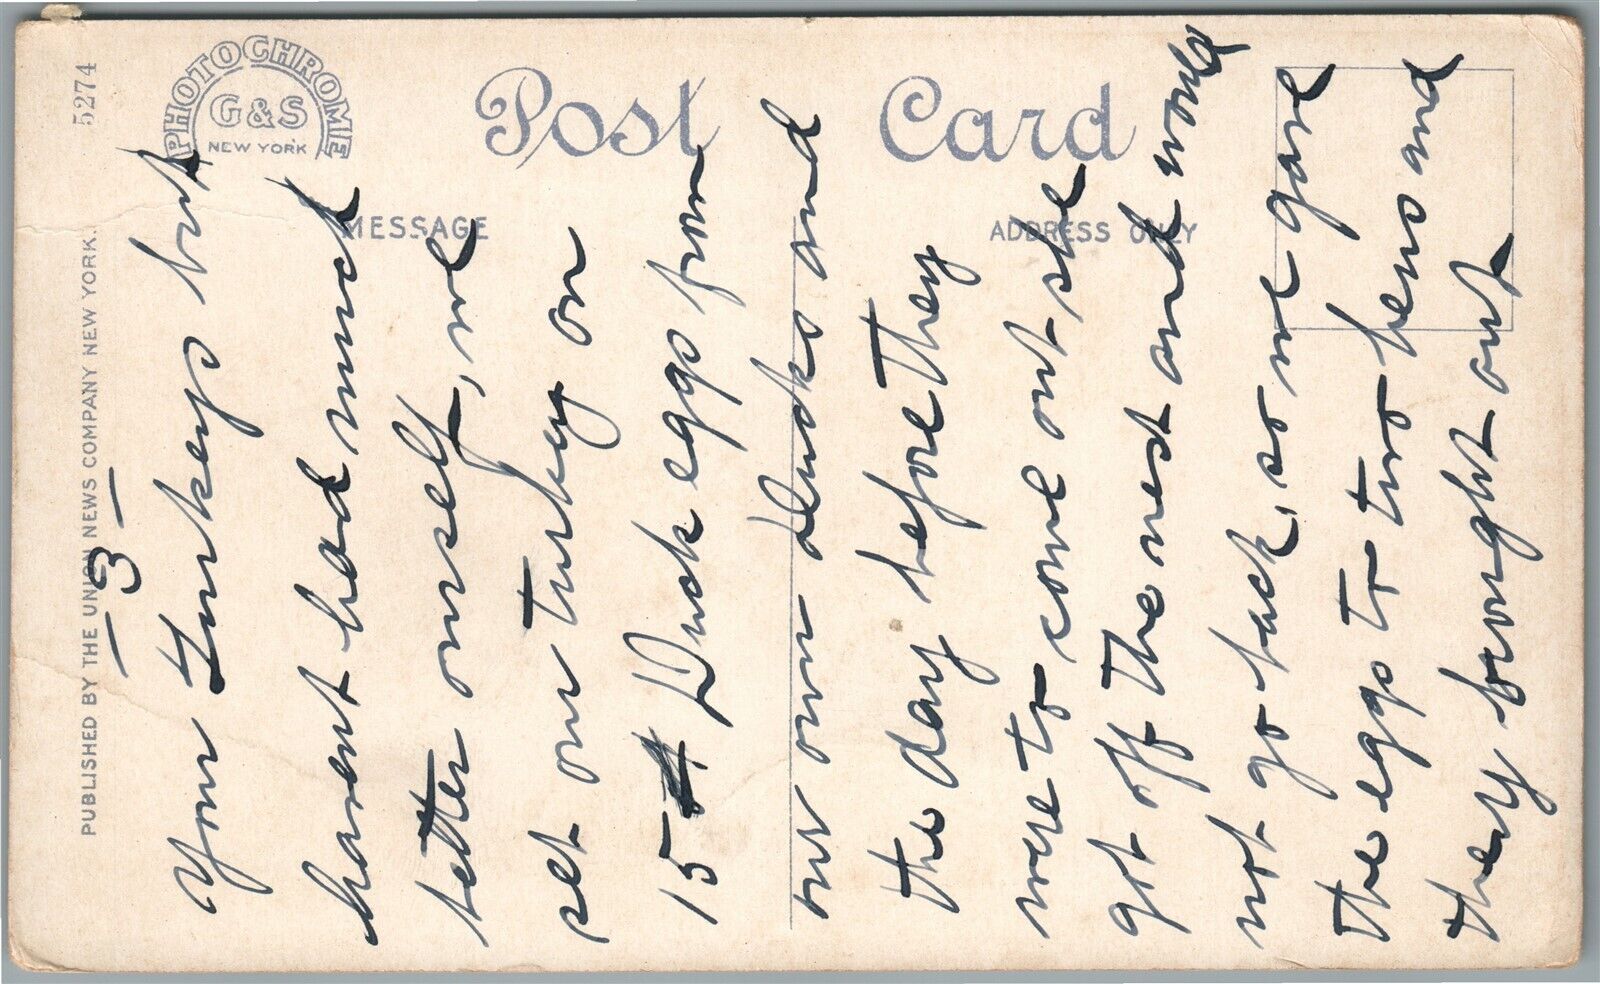 5274
PHOTOCHROME
G & S
NEW YORK
Post Card
MESSAGE
ADDRESS ONLY
PUBLISHED BY THE UNION NEWS COMPANY NEW YORK.
— 3 —
Your Turkeys but
havent had much
better ourself, we
set our turkey on
15 Duck eggs from
our own ducks and
the day before they
were to come out she
got off the nest and would
not go back, so we gave
the eggs to two hens and
they brought out